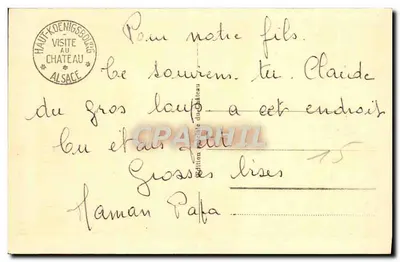 HAUT-KOENIGSBOURG
VISITE
AU
CHATEAU
ALSACE
Pour notre fils.
Te souviens-tu Claude
du gros loup a cet endroit
tu étais petit
Grosses bises
Maman Papa
15
CPARHAMA